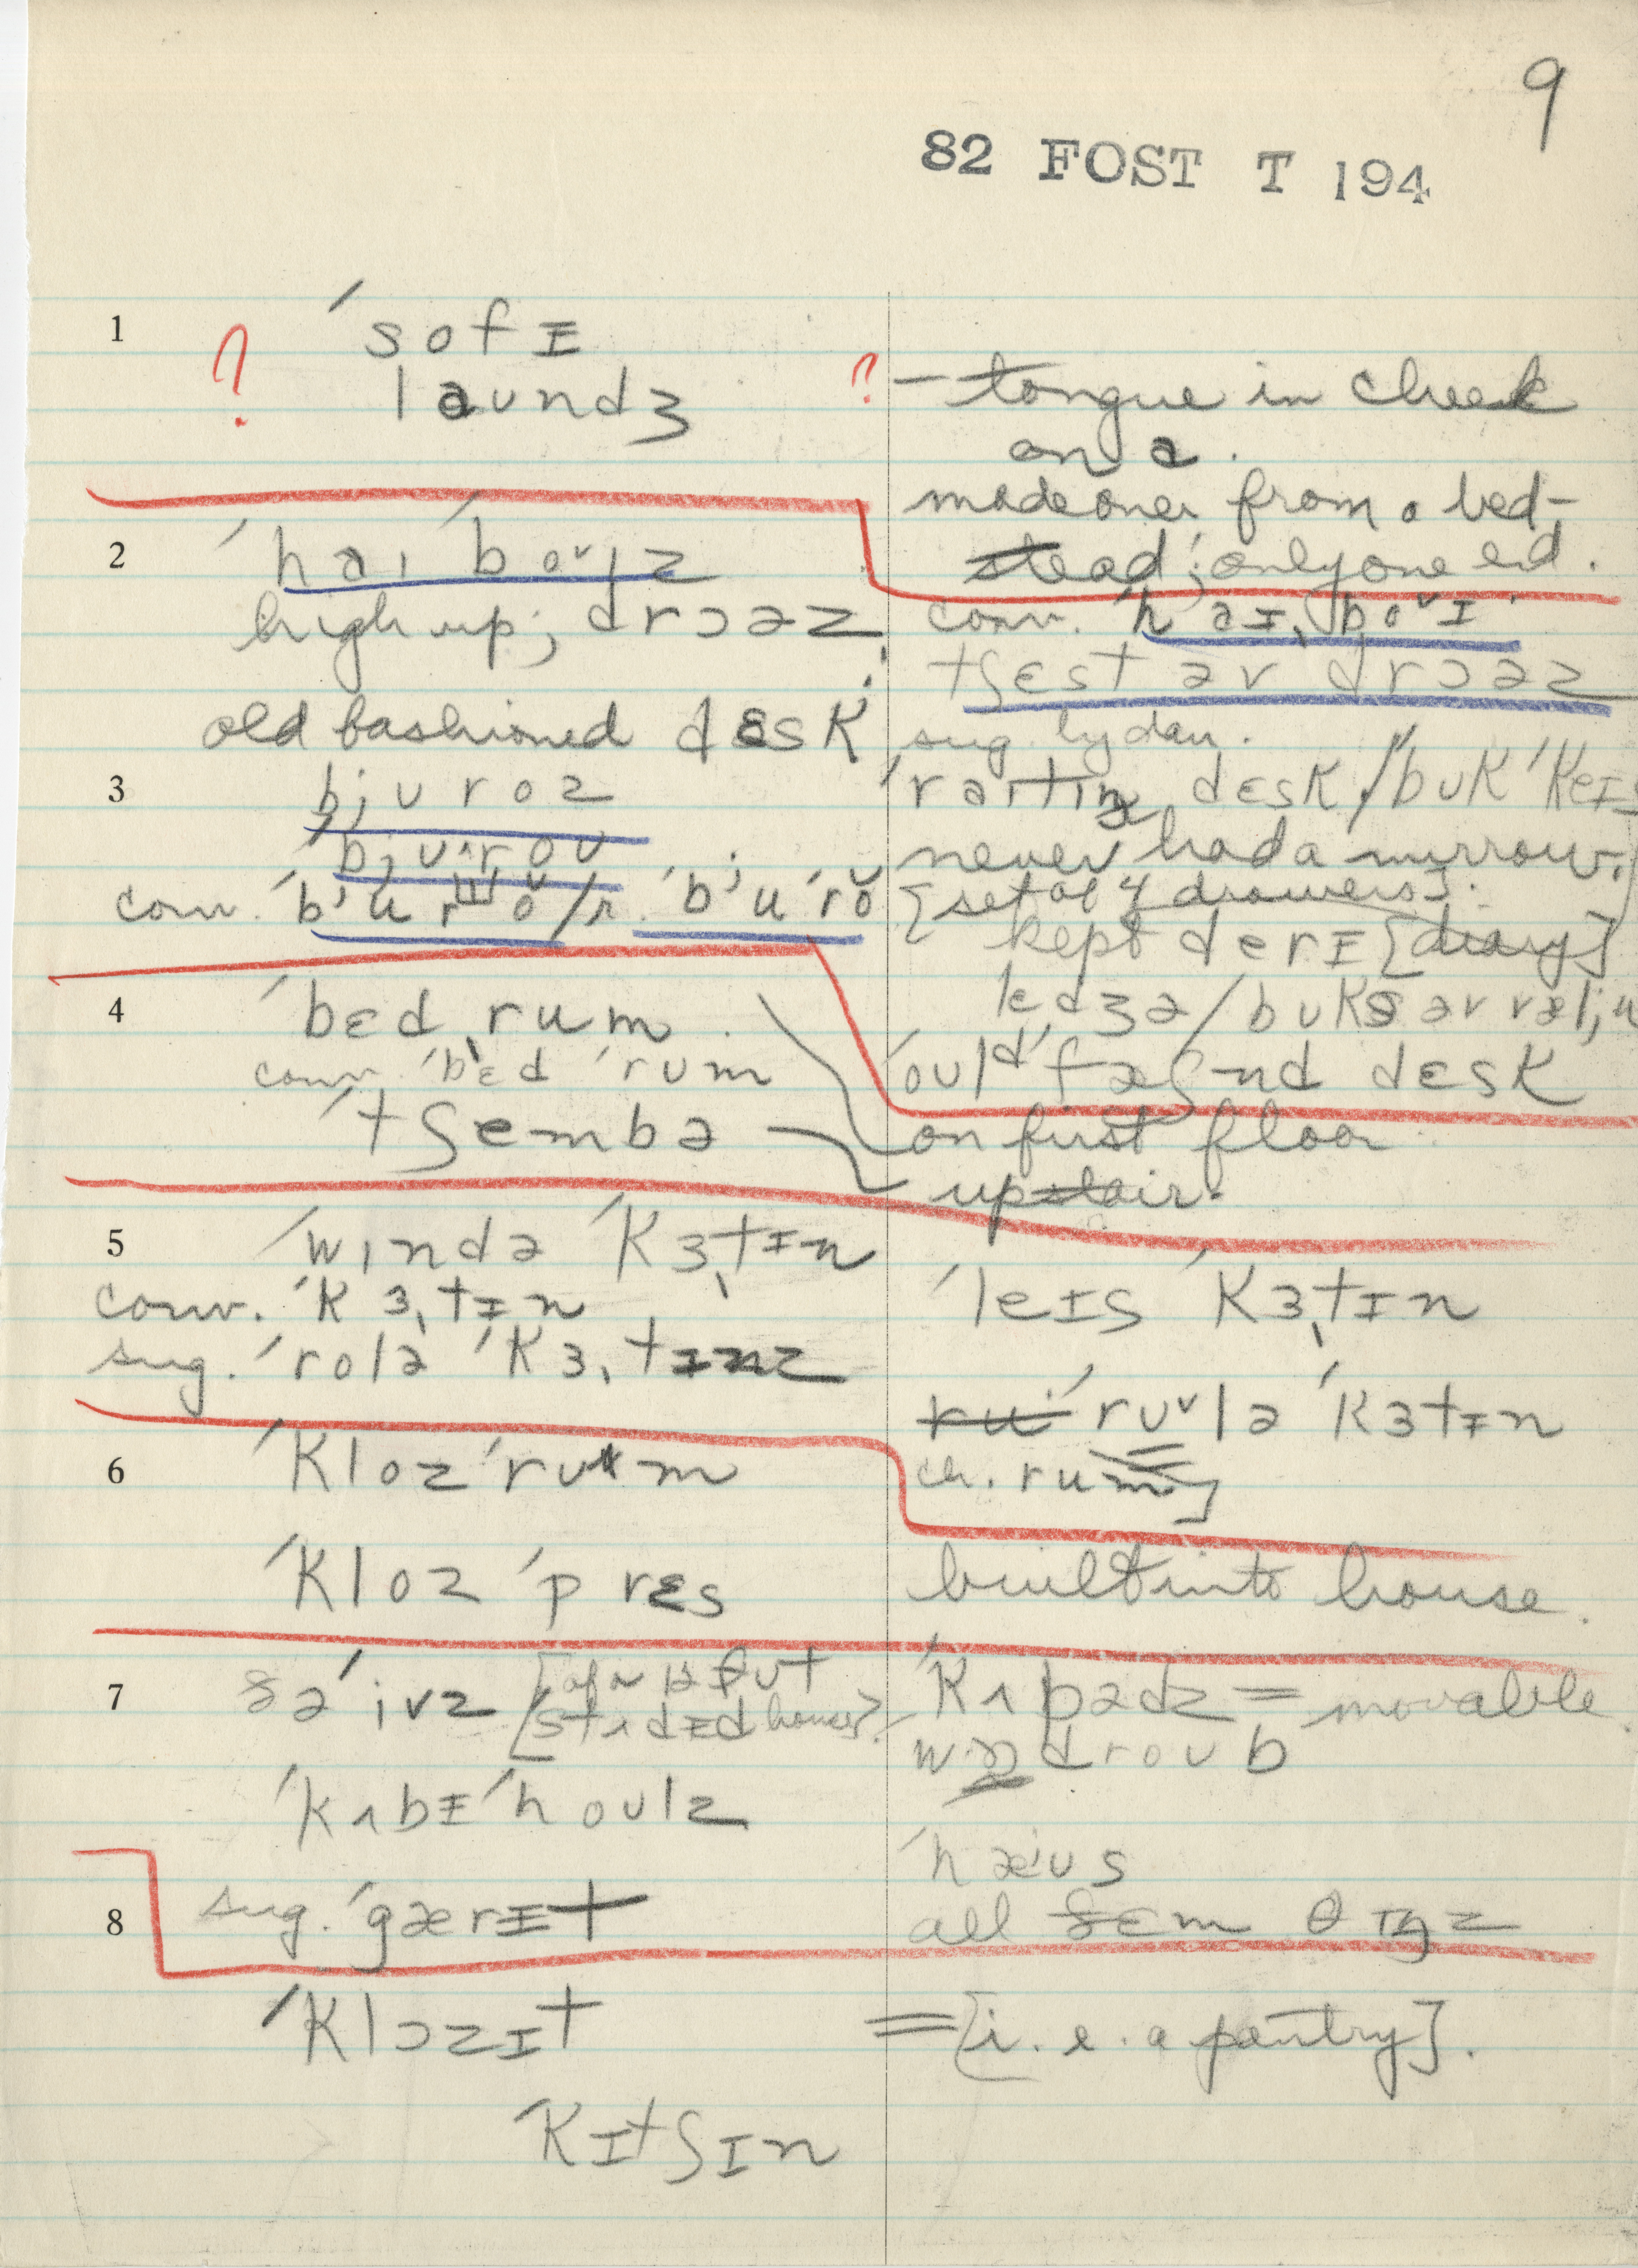 9
82 FOST T 194
1
ˈsofɪ
laundʒ
?
? – tongue in cheek
on a.
made over from a bed-
stead; only one end.
2
ˈhaɪˈboʊɪz
high up; drɔəz
conv. ˈhaɪˌboʊɪ
tʃɛst əv drɔəz
sug. by dau.
old fashioned dɛsk
3
bjʊroz
ˈraɪtɪŋ dɛsk / ˈbʊkˈkeɪs
never had a mirrow.
[set of 4 drawers].
kept derɪ [diary]
lɛdʒə / bʊks əv
ˈoʊldˈfæʃnd dɛsk
4
ˈbɛdˌrum
conv. ˈbɛdˈrʊm
ˈtʃembə
on first floor
upstair.
5
ˈwɪndəˈkɜˌtɪn
conv. ˈkɜˌtɪn
sug. ˈroləˈkɜˌtɪnz
ˈleɪsˈkɜˌtɪn
ˈrʊləˈkɜtɪn
ch. rum]
6
ˈklozˈrʊm
ˈklozˈprɛs
built into house.
7
ðəˈivz
ˈkʌpədz = movable.
droʊb
ˈkʌbɪˈhoʊlz
ˈhæʊs
8
sug. ˈgærɪt
all ðɛm θɪŋz
ˈklɔzɪt
= [i.e. a pantry].
ˈkɪtʃɪn